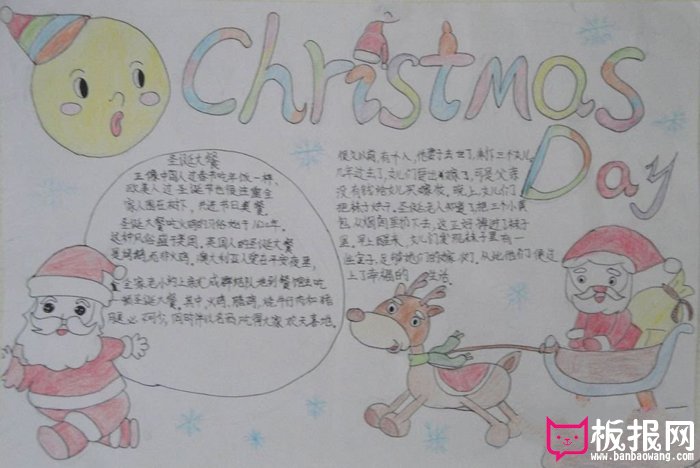 Christmas
Day
圣诞大餐
正像中国人过春节吃年饭一样、
欧美人过圣诞节也很注重全
家人围在树下，共进节日美餐
圣诞大餐吃火鸡的习俗始于1620年。
这种风俗盛于美国。英国人的圣诞大餐
是烤鹅，而非火鸡。澳大利亚人爱在平安夜里，
全家老小约上亲友成群结队地到餐馆去吃
一顿圣诞大餐。其中，火鸡、腊鸡、烧牛仔肉和猪
腿必不可少，同时伴以名酒，吃得大家欢天喜地。
很久以前，有个人，他妻子去世了，剩下三个女儿
几年过去了，女儿们要出嫁了，可是父亲
没有钱给女儿买嫁妆，晚上，女儿们
把袜子
圣诞老人知道了，把三个小黄
包，从烟囱里扔下去，这正好掉进了袜子
里。早上醒来，女儿们发现袜子里有一
些金子，足够她们的嫁妆了。从此他们便过
上了幸福的 生活。
板报网
www.banbaowang.com